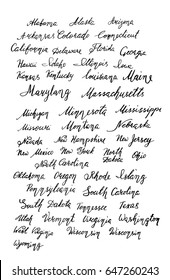 Alabama Alaska Arizona
Arkansas Colorado Connecticut
California Delaware Florida Georgia
Hawaii Idaho Illinois Iowa
Kansas Kentucky Louisiana Maine
Maryland Massachusetts
Michigan Minnesota Mississippi
Missouri Montana Nebraska
Nevada New Hampshire New Jersey
New Mexico New York North Dakota Ohio
North Carolina
Oklahoma Oregon Rhode Island
Pennsylvania South Carolina
South Dakota Tennessee Texas
Utah Vermont Virginia Washington
West Virginia Wisconsin Wisconsin
Wyoming
shutterstock.com · 647260243